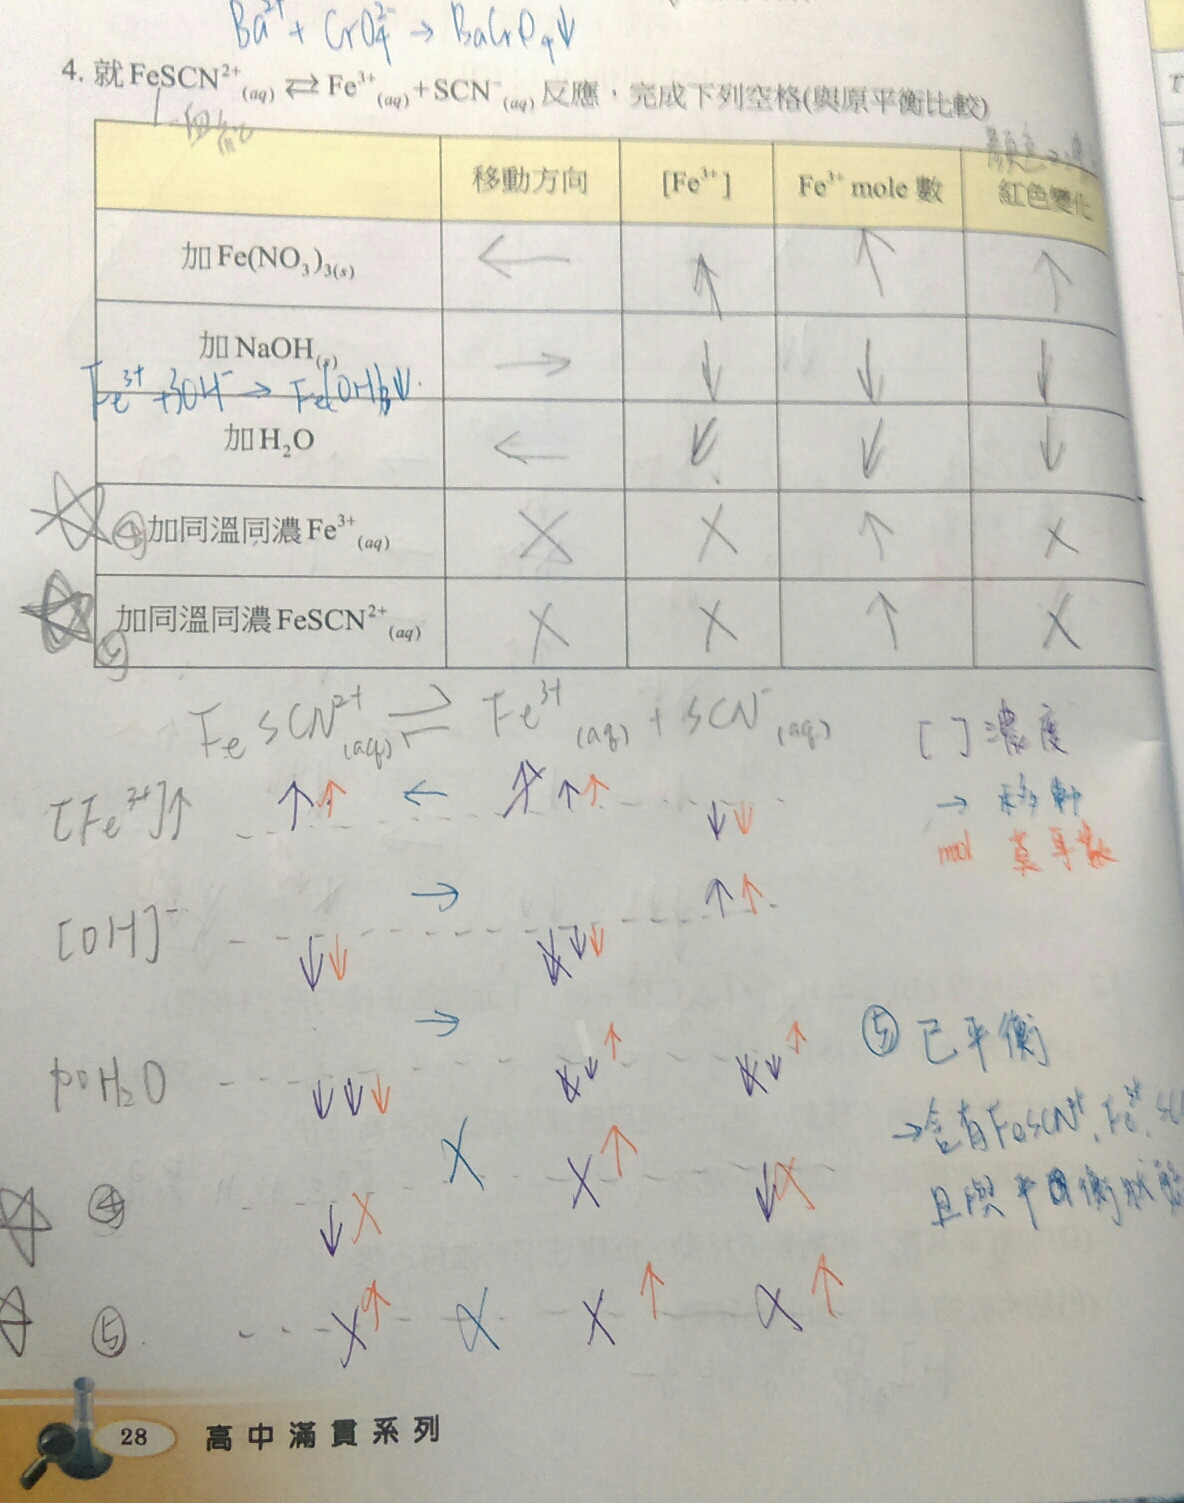 Ba²⁺ + CrO₄²⁻ → BaCrO₄↓
4. 就 FeSCN²⁺(aq) ⇄ Fe³⁺(aq) + SCN⁻(aq) 反應，完成下列空格(與原平衡比較)
移動方向 [Fe³⁺] Fe³⁺ mole 數 紅色變化
加 Fe(NO₃)₃(s) ← ↑ ↑ ↑
加 NaOH(s) → ↓ ↓ ↓
Fe³⁺ + 3OH⁻ → Fe(OH)₃↓
加 H₂O ← ↓ ↓ ↓
④ 加同溫同濃 Fe³⁺(aq) X X ↑ X
⑤ 加同溫同濃 FeSCN²⁺(aq) X X ↑ X
FeSCN²⁺(aq) ⇌ Fe³⁺(aq) + SCN⁻(aq)
[ ] 濃度
[Fe³⁺]↑ ↑↑ ← ↑↑↑ ↓↓
→ 移動
mol 莫耳數
[OH]⁻ ↓↓ → ↓↓↓ ↑↑
加H₂O ↓↓↓ → ↓↓↑ ↓↓↑
⑤ 已平衡
→含有FeSCN²⁺、Fe³⁺、SC
④ ↓X X X↑ ↓X
⑤ X↑ X X↑ X↑
28 高中滿貫系列